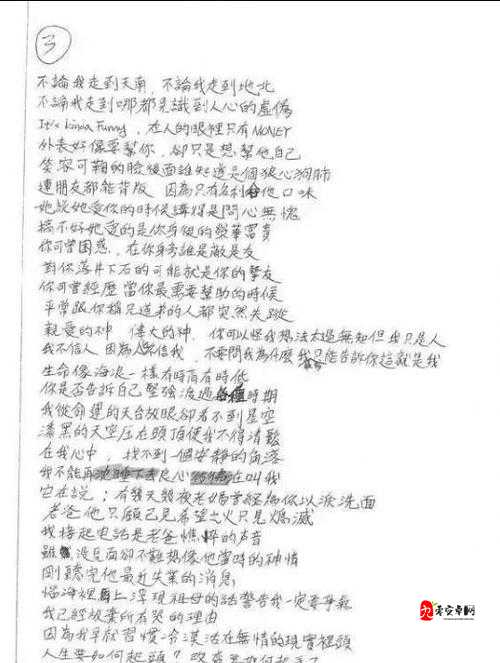 3
不論我走到天南，不論我走到地北
不論我走到哪都見識到人心的虛偽
It's kinda Funny，在人的眼裡只有MONEY
外表好像要幫你，卻只是想幫他自己
笑容可鞠的臉後面誰知道是個狼心狗肺
連朋友都能背版 因為只有名利合他口味
她說她愛你的時候講得是問心無愧
搞不好她愛的是你身後的榮華富貴
你可曾困惑，在你身旁誰是敵是友
對你落井下石的可能就是你的摯友
你可曾經歷當你最需要幫助的時候
平常跟你稱兄道弟的人都突然失蹤
親愛的神 偉大的神，你可以怪我想法太過無知但我只是人
我不信人 因為人不信我，不要問我為什麼 我只能告訴你這就是我
生命像海浪一樣有時高有時低
你是否告訴自己堅強渡過 時期
我從命運的天台放眼卻看不到星空
漆黑的天空压在頭頂使我不得清鬆
在我心中，找不到一個安靜的角落
我不能再沈睡下去良心 在叫我
它在說；有幾天幾夜老媽曾經為你以淚洗面
老爸他只顧己見希望之火只見熄滅
我接起電話是老爸憔悴的声音
雖沒見面卻不難想像他當時的神情
剛聽完他最近失業的消息
腦海裡馬上浮現祖母的話警告我一定要爭氣
我已經放棄所有哭的理由
因為我早就習慣冷漠活在無情的現實裡頭
人生要如何起頭？